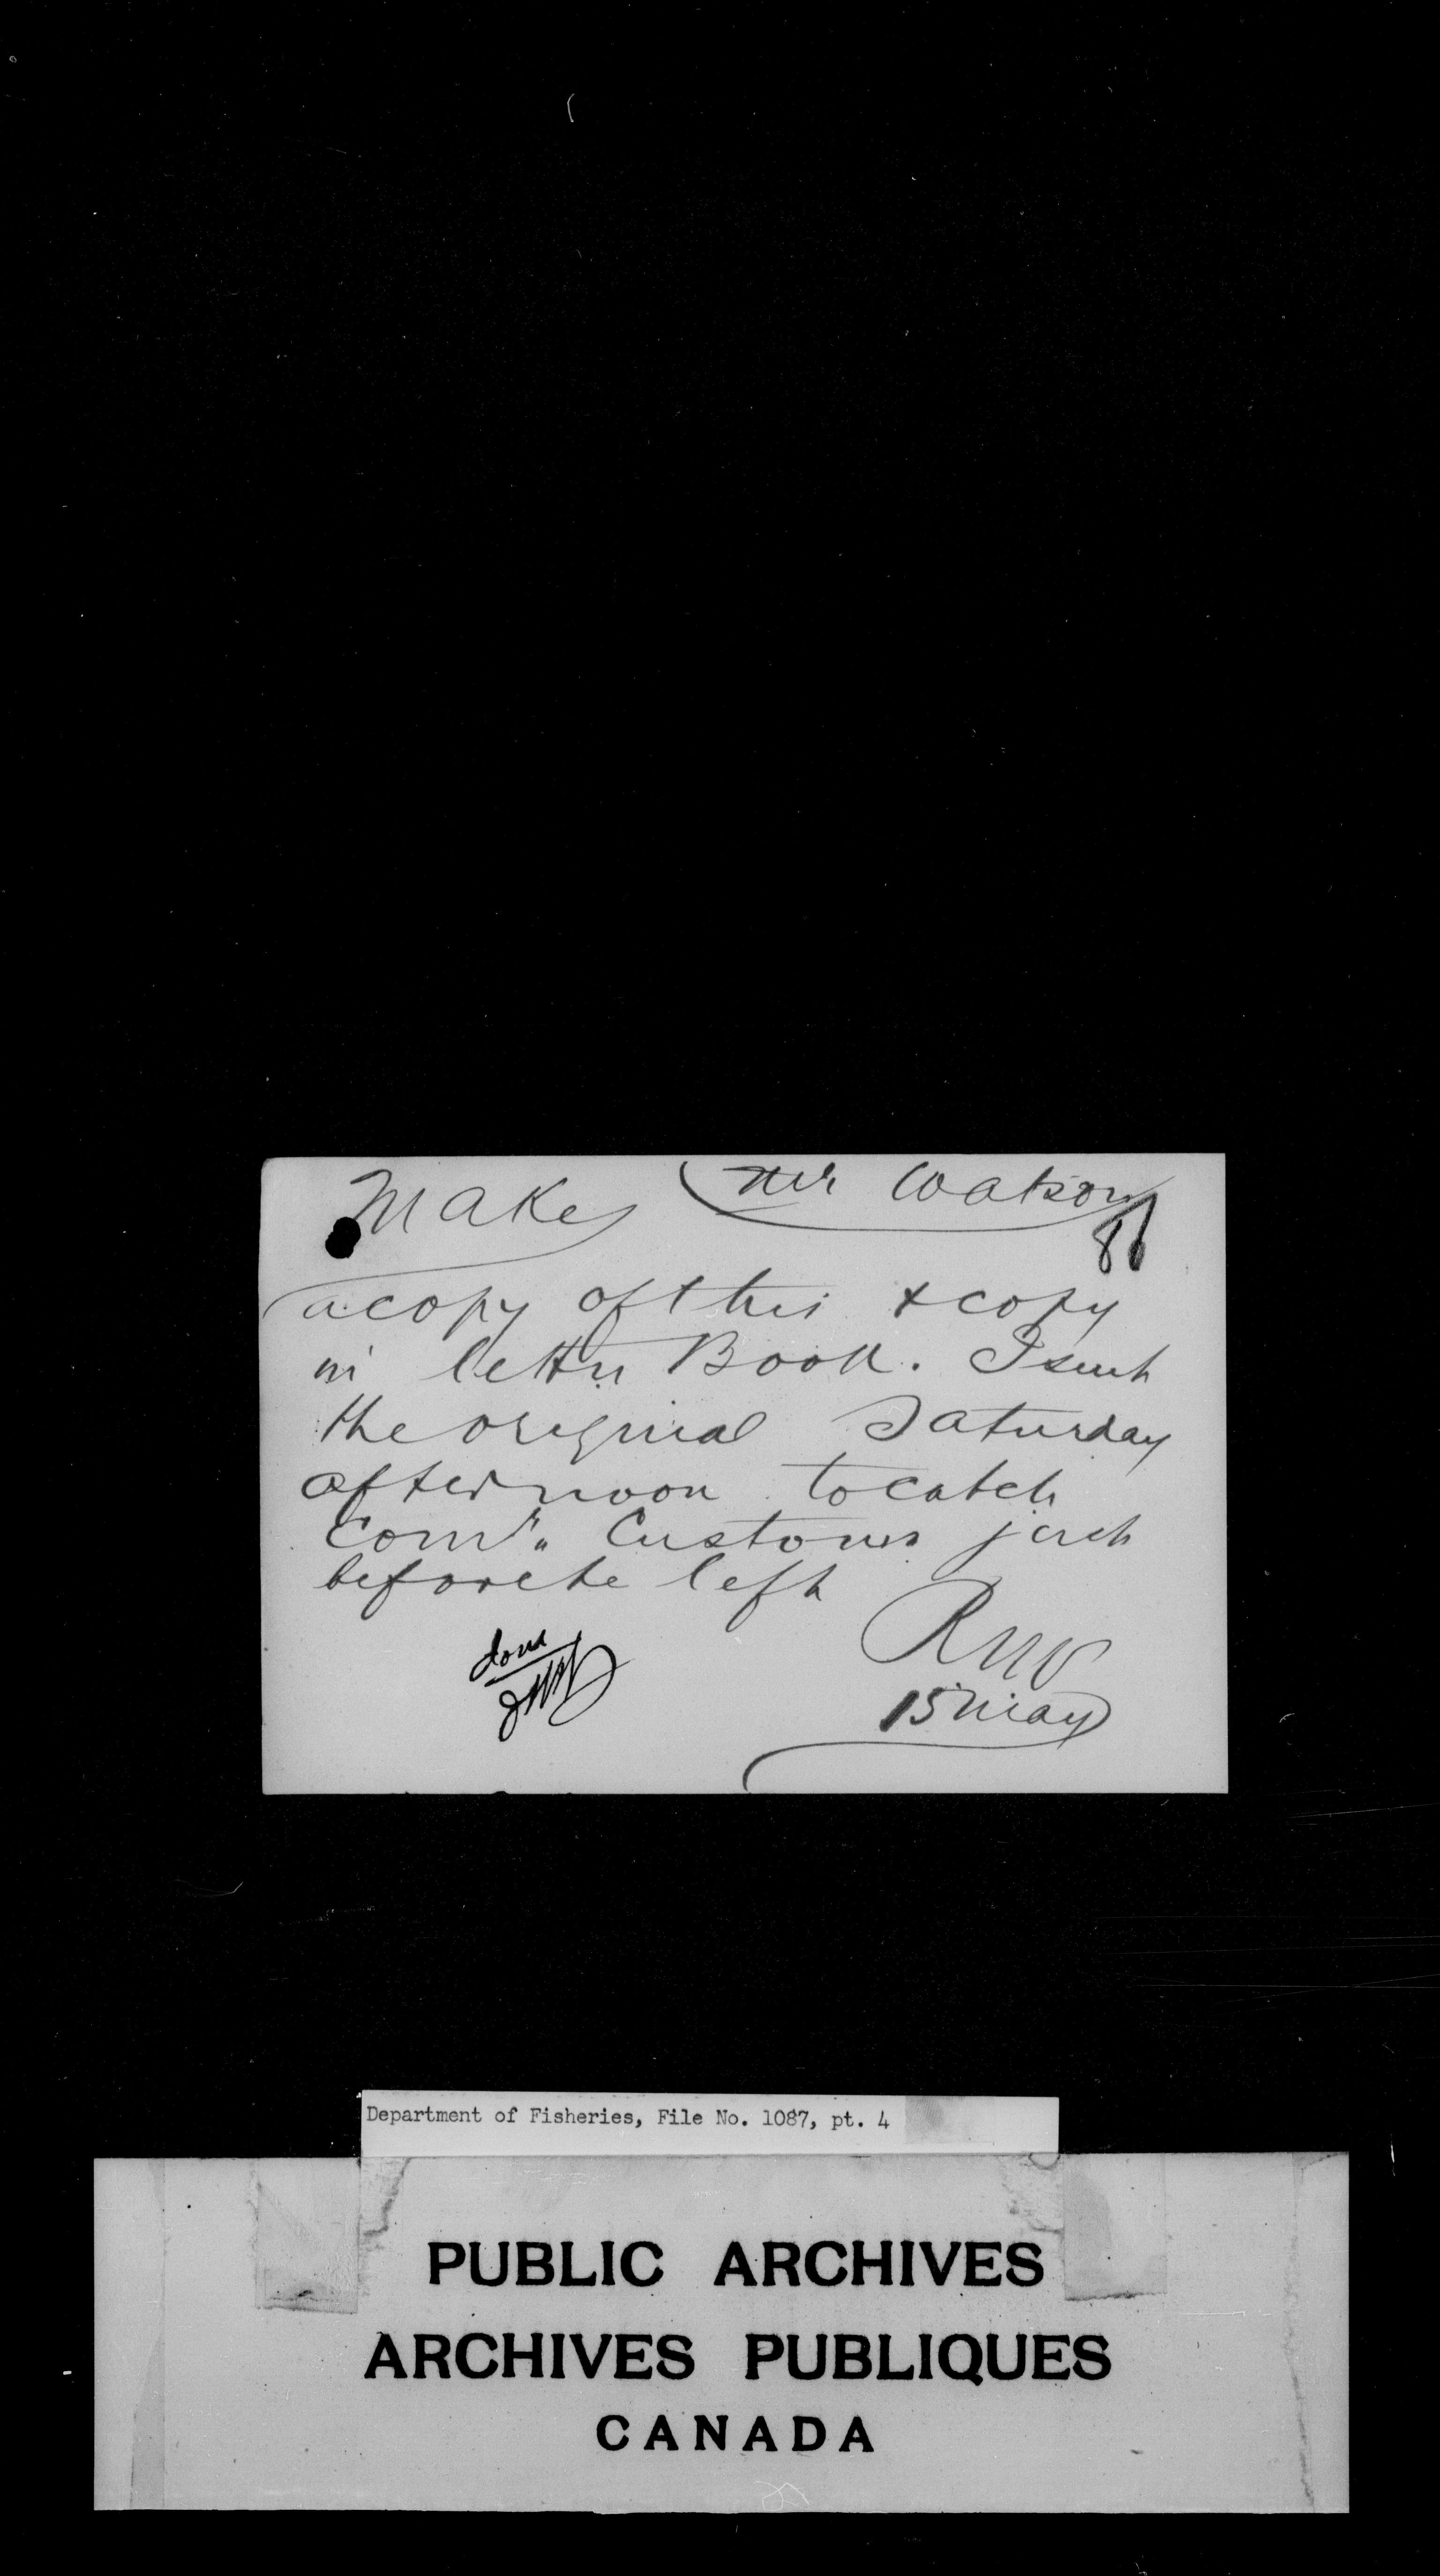 Mr Watson
86
Make
a copy of this & copy
in letter Book. I sent
the original Saturday
afternoon to catch
Comr. Customs just
before he left
RNV
15 May
done
Department of Fisheries, File No. 1087, pt. 4
PUBLIC ARCHIVES
ARCHIVES PUBLIQUES
CANADA